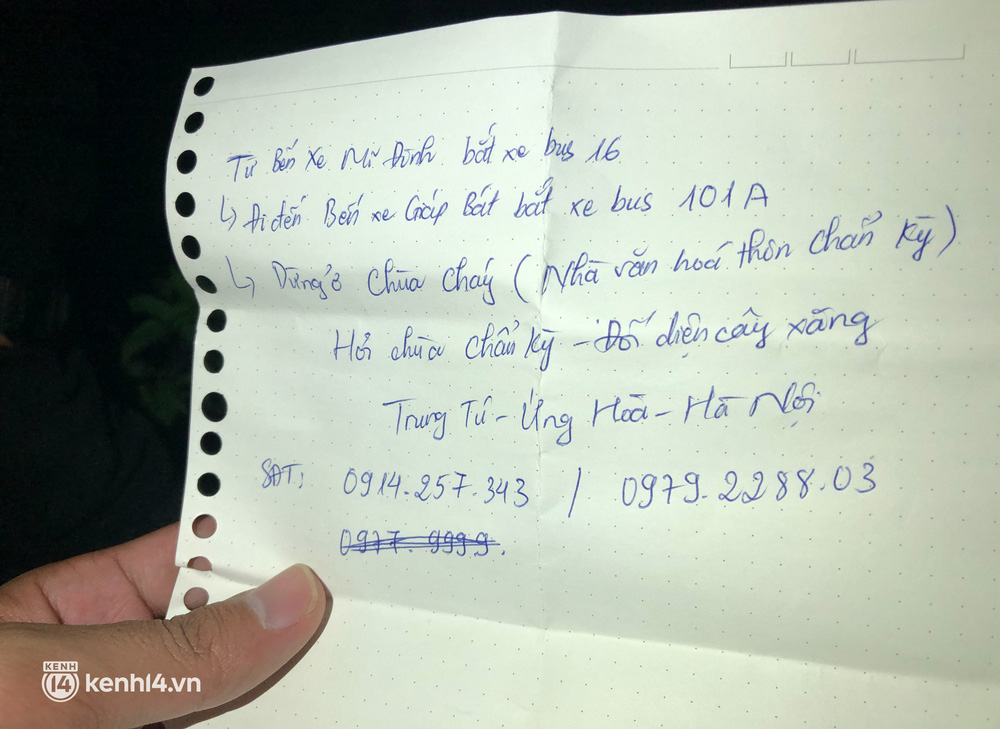 Từ Bến Xe Mĩ Đình bắt xe bus 16
↳ Đi đến Bến xe Giáp Bát bắt xe bus 101A
↳ Dừng ở chùa cháy (Nhà văn hoá thôn chẩn Kỳ)
Hỏi chùa chẩn Kỳ - Đối diện cây xăng
Trung Tú - Ứng Hoà - Hà Nội
SĐT: 0914.257.343 / 0979.2288.03
0977.9999.
KENH
14 kenh14.vn